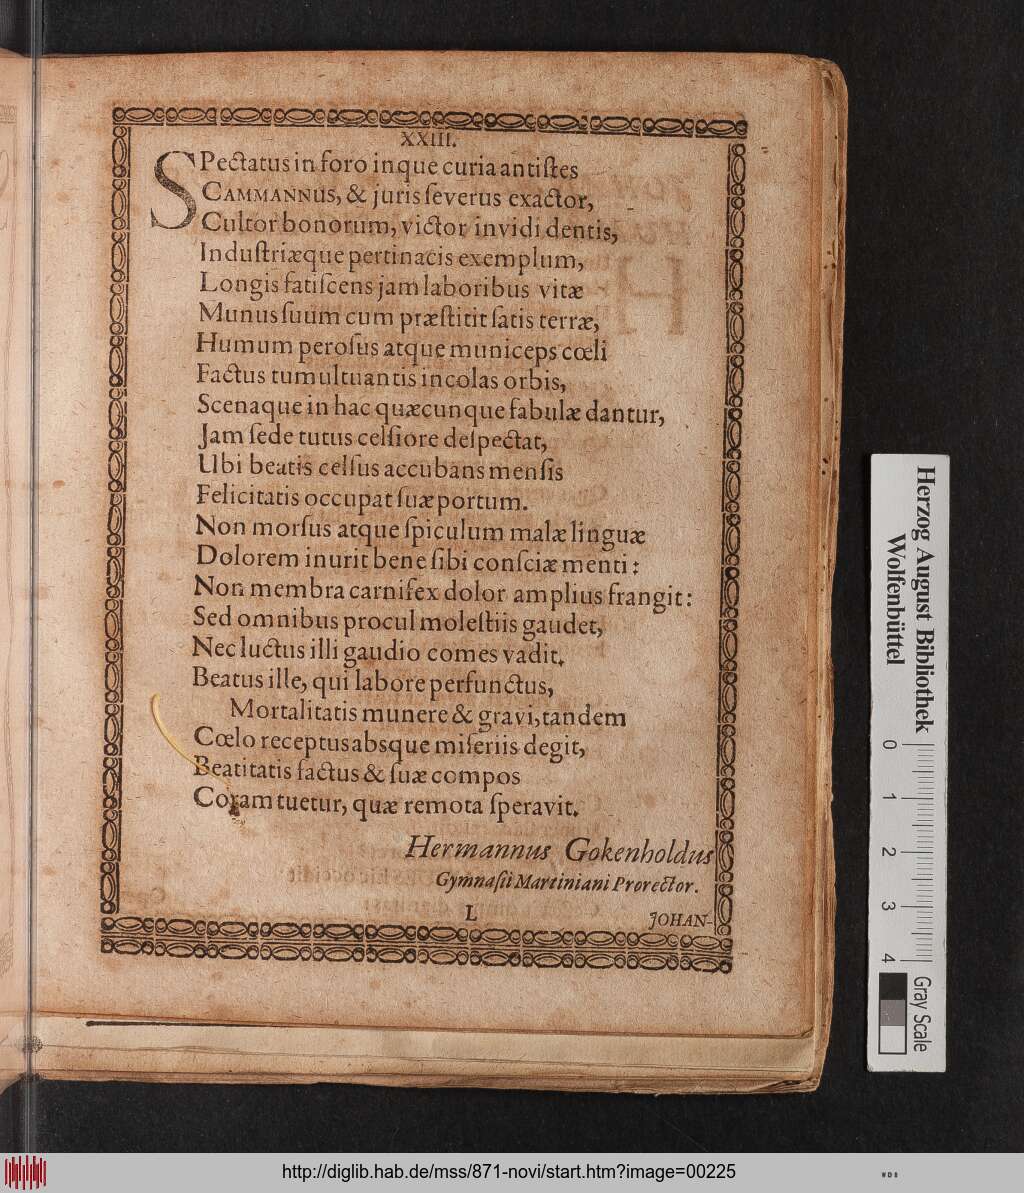 XXIII.
SPectatus in foro inque curia antiſtes
CAMMANNUS, & juris ſeverus exactor,
Cultor bonorum, victor invidi dentis,
Induſtriæque pertinacis exemplum,
Longis fatiſcens jam laboribus vitæ
Munus ſuum cum præſtitit ſatis terræ,
Humum peroſus atque municeps cœli
Factus tumultuantis incolas orbis,
Scenaque in hac quæcunque fabulæ dantur,
Jam ſede tutus celſiore deſpectat,
Ubi beatis celſus accubans menſis
Felicitatis occupat ſuæ portum.
Non morſus atque ſpiculum malæ linguæ
Dolorem inurit bene ſibi conſciæ menti:
Non membra carnifex dolor amplius frangit:
Sed omnibus procul moleſtiis gaudet,
Nec luctus illi gaudio comes vadit.
Beatus ille, qui labore perfunctus,
Mortalitatis munere & gravi, tandem
Cœlo receptus absque miſeriis degit,
Beatitatis factus & ſuæ compos
Coram tuetur, quæ remota ſperavit.
Hermannus Gokenholdus
Gymnaſii Martiniani Prorector.
L
JOHAN-
Herzog August Bibliothek
Wolfenbüttel
0 1 2 3 4
Gray Scale
http://diglib.hab.de/mss/871-novi/start.htm?image=00225